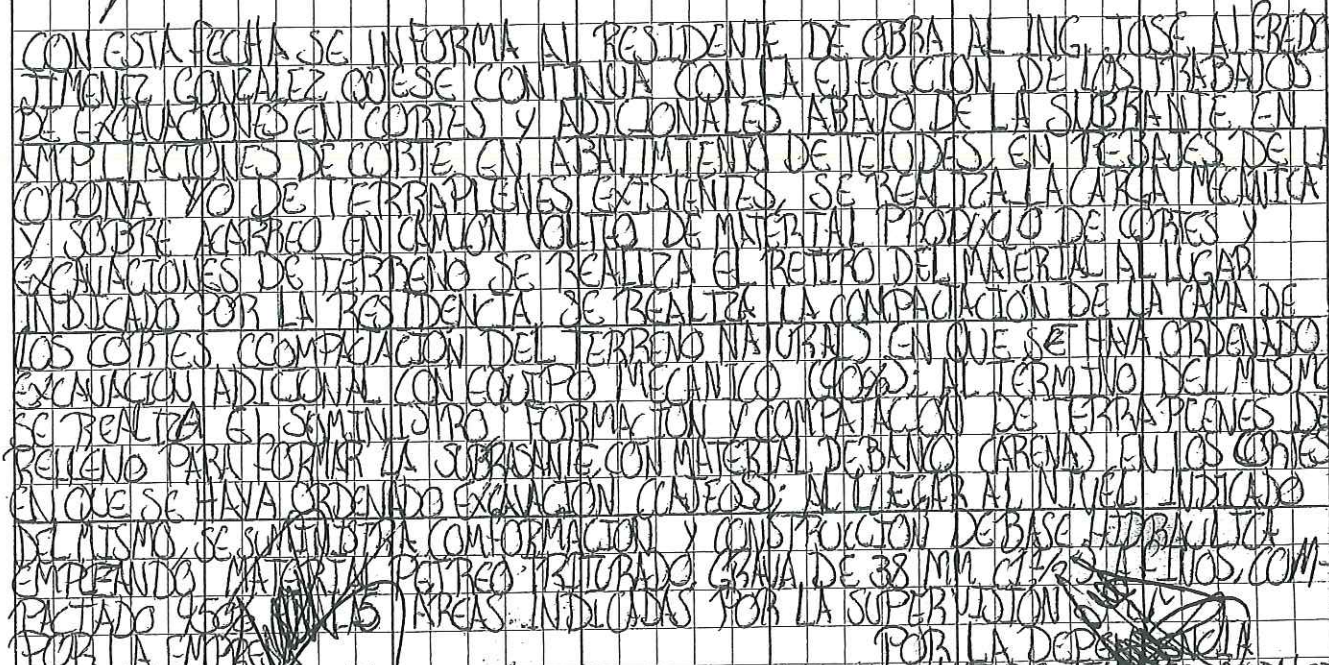 CON ESTA FECHA SE INFORMA AL RESIDENTE DE OBRA AL ING. JOSE ALFREDO
JIMENEZ GONZALEZ QUE SE CONTINUA CON LA EJECUCION DE LOS TRABAJOS
DE EXCAVACIONES EN CORTES Y ADICIONALES ABAJO DE LA SUBRANTE EN
AMPLIACIONES DE CORTE EN ABATIMIENTO DE TELUDES, EN REBAJES DE LA
CORONA Y/O DE TERRAPLENES EXISTENTES, SE REALIZA LA CARGA MECANICA
Y SOBRE ACARREO EN CAMION VOLTEO DE MATERIAL PRODUCTO DE CORTES Y
EXCAVACIONES DE TERRENO SE REALIZA EL RETIRO DEL MATERIAL AL LUGAR
INDICADO POR LA RESIDENCIA SE REALIZA LA COMPACTACION DE LA CAMA DE
LOS CORTES (COMPACTACION DEL TERRENO NATURAL) EN QUE SE HAYA ORDENADO
EXCAVACION ADICIONAL CON EQUIPO MECANICO (90%); AL TERMINO DEL MISMO
SE REALIZA EL SUMINISTRO FORMACION Y COMPATACION DE TERRAPLENES DE
RELLENO PARA FORMAR LA SUBRASANTE CON MATERIAL DE BANCO (ARENA) EN LOS CORTES
EN QUE SE HAYA ORDENADO EXCAVACION (CAJEOS); AL LLEGAR AL NIVEL INDICADO
DEL MISMO, SE SUMINISTRA COMFORMACION Y CONSTRUCCION DE BASE HIDRAULICA
EMPLEANDO MATERIAL PETREO TRITURADO GRAVA DE 38 MM FINOS, COM-
PACTADO AREAS INDICADAS POR LA SUPERVISION
POR LA EMPRE
POR LA DEPENDENCIA